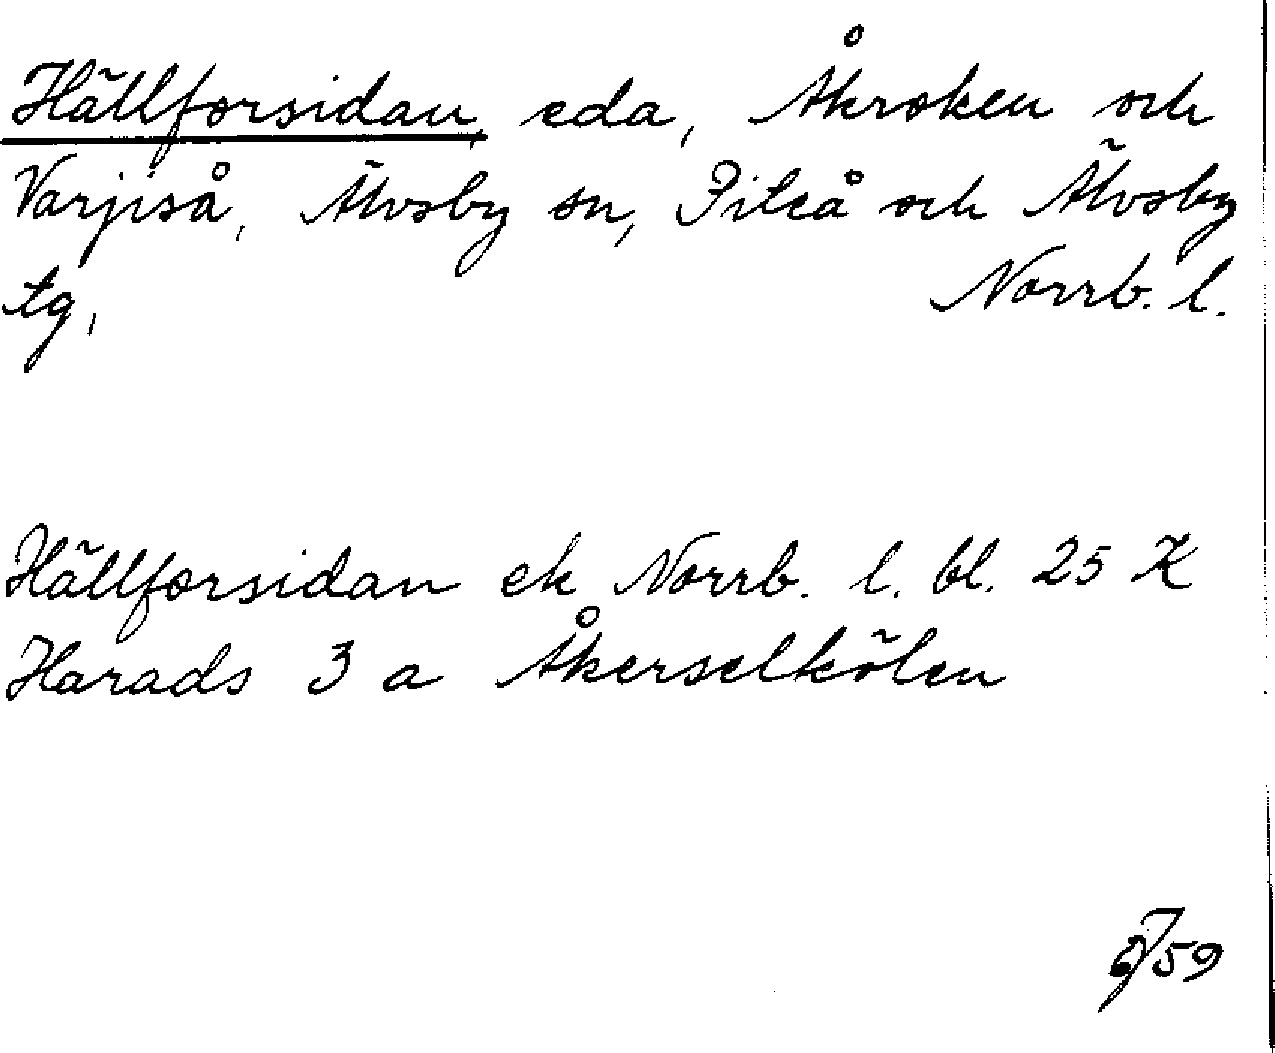 Hällforsidan, eda, Åkroken och
Varjiså, Älvsby sn, Piteå och Älvsby
tg, Norrb. l.
Hällforsidan ek Norrb. l. bl. 25 K
Harads 3 a Åkerselkölen
59